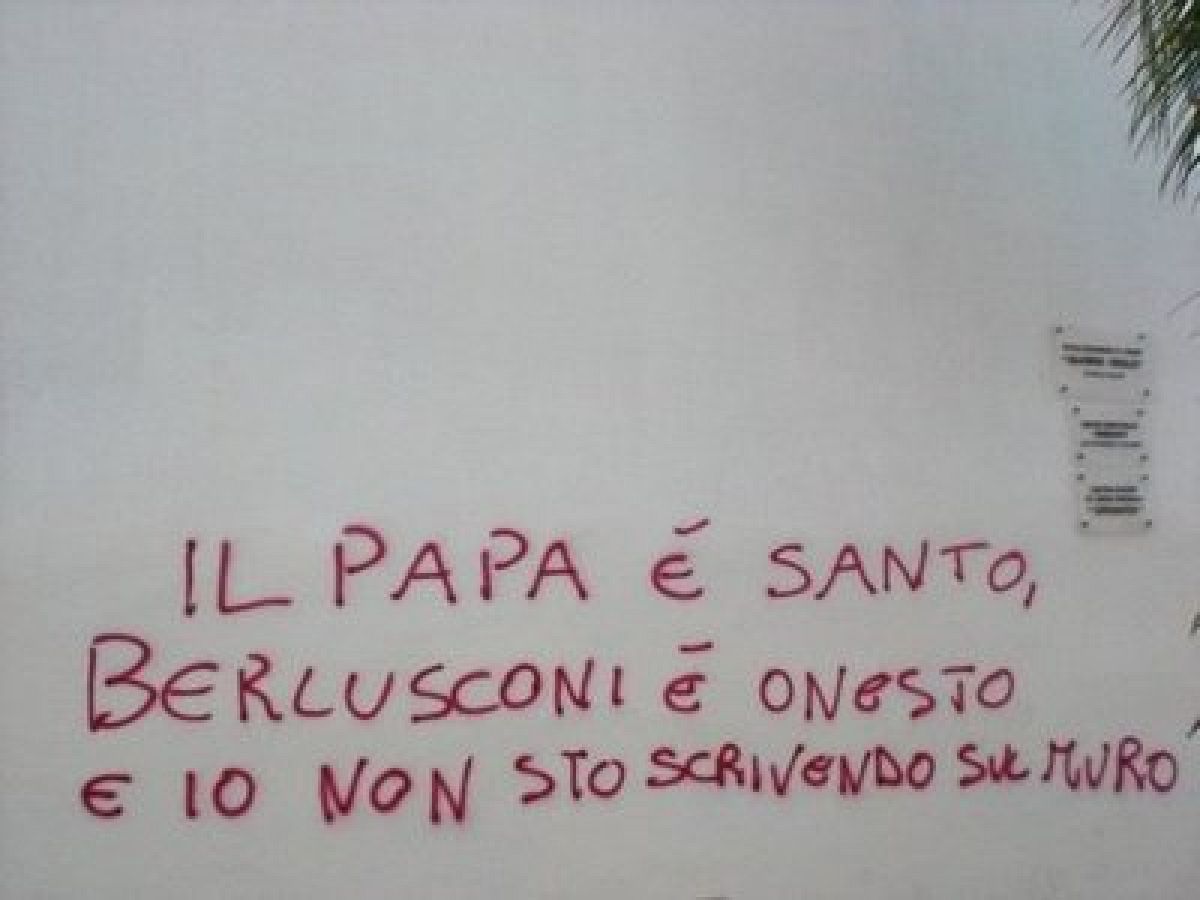 IL PAPA É SANTO,
BERLUSCONI É ONESTO
E IO NON STO SCRIVENDO SUL MURO